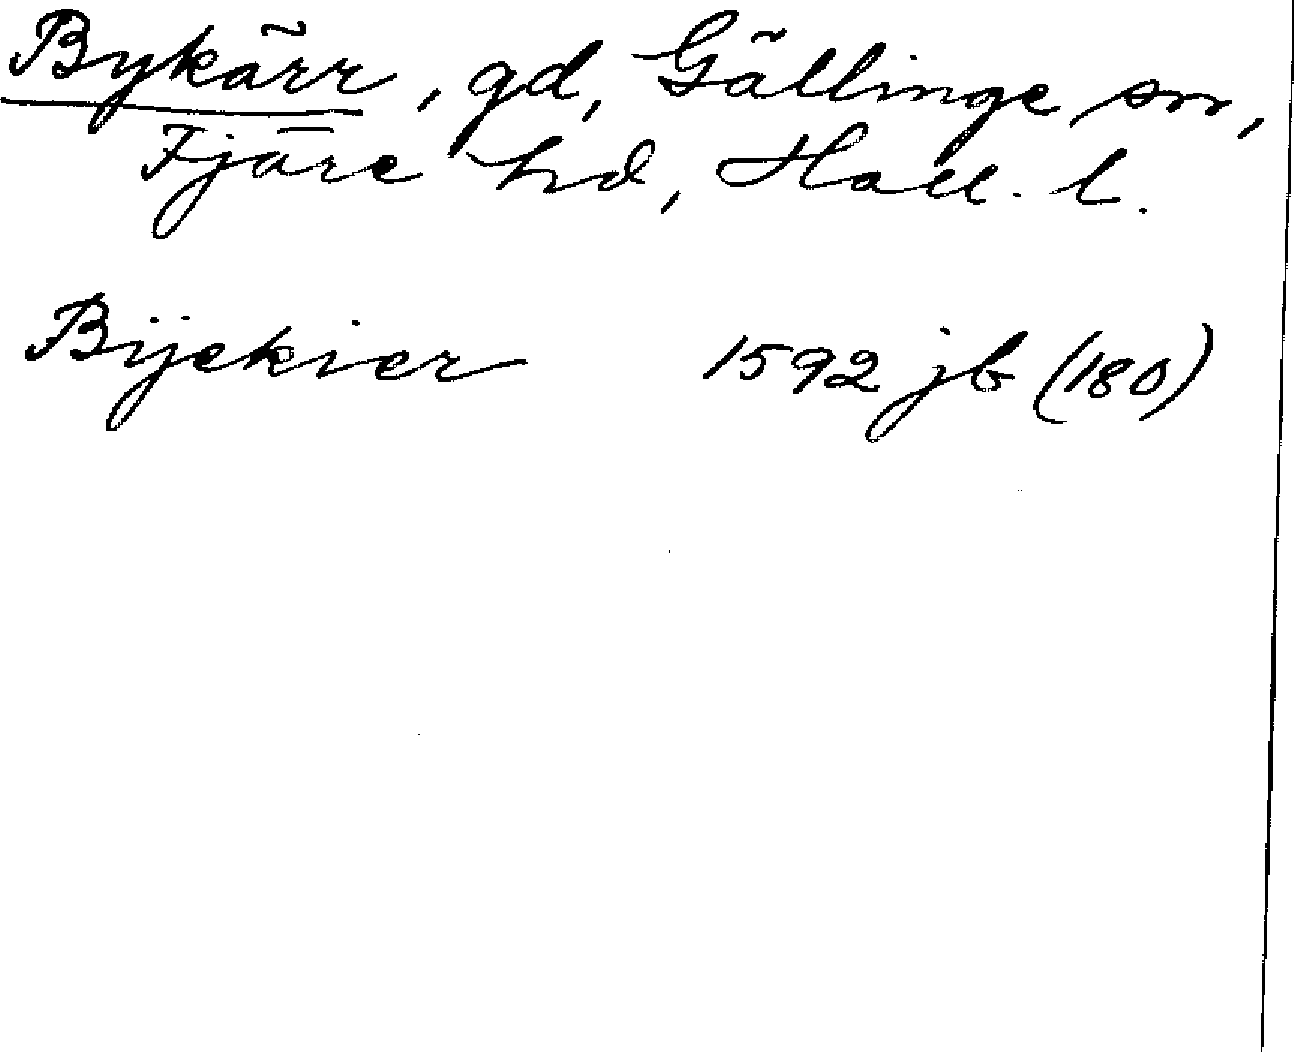 Bykärr, gd, Gällinge sn,
Fjäre hd, Hall. l.
Bijekier 1592 jb (180)